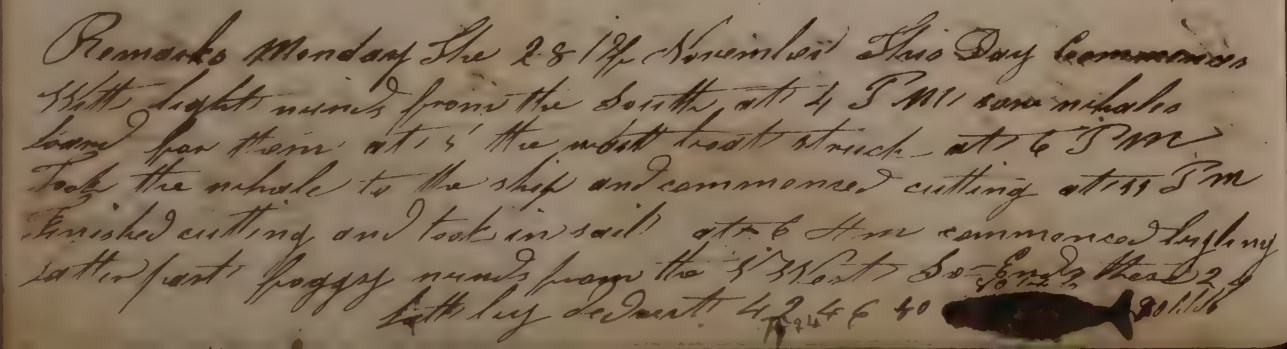 Remarks Monday The 28 1/2 of November This Day Commences
With light winds from the South at 4 P M saw whales
Loard for them at 5 the wast boat struck at 6 P M
Took the whale to the ship and commenced cutting at 11 P m
Finished cutting and took in sail at 6 A m commenced bogling
Latter part foggy winds from the West So Ends these 24
Latt by deduct 42 46 80